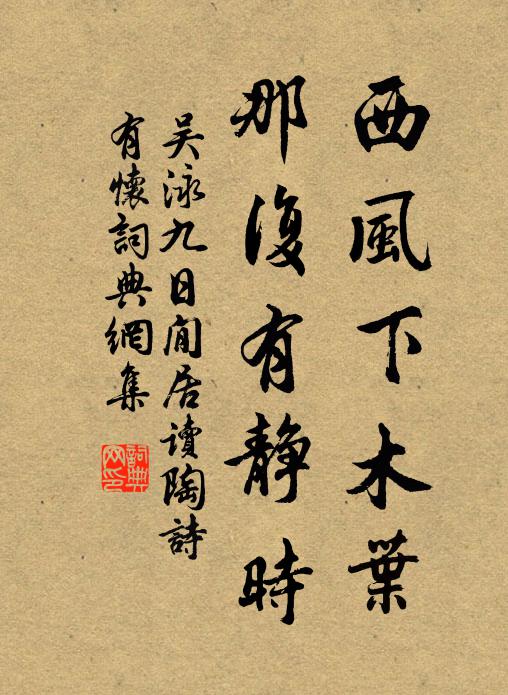 西風下木葉
那復有静時
吴泳九日閒居讀陶詩
有懷詞典網集
詞典網印